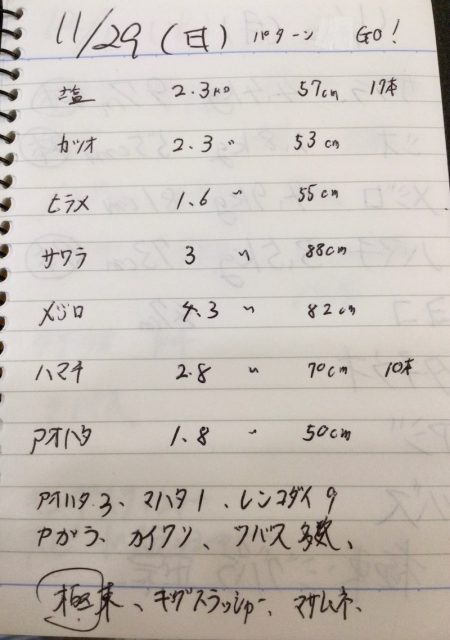 11/29 (日) パターン GO!
塩 2.3キロ 57cm 17本
カツオ 2.3 〃 53cm
ヒラメ 1.6 〃 55cm
サワラ 3 〃 88cm
メジロ 4.3 〃 82cm
ハマチ 2.8 〃 70cm 10本
アオハタ 1.8 〃 50cm
アオハタ3、マハタ1、レンコダイ9
ヤガラ、カイワリ、ツバス多数、
極東、ギグスラッシャー、マサムネ、